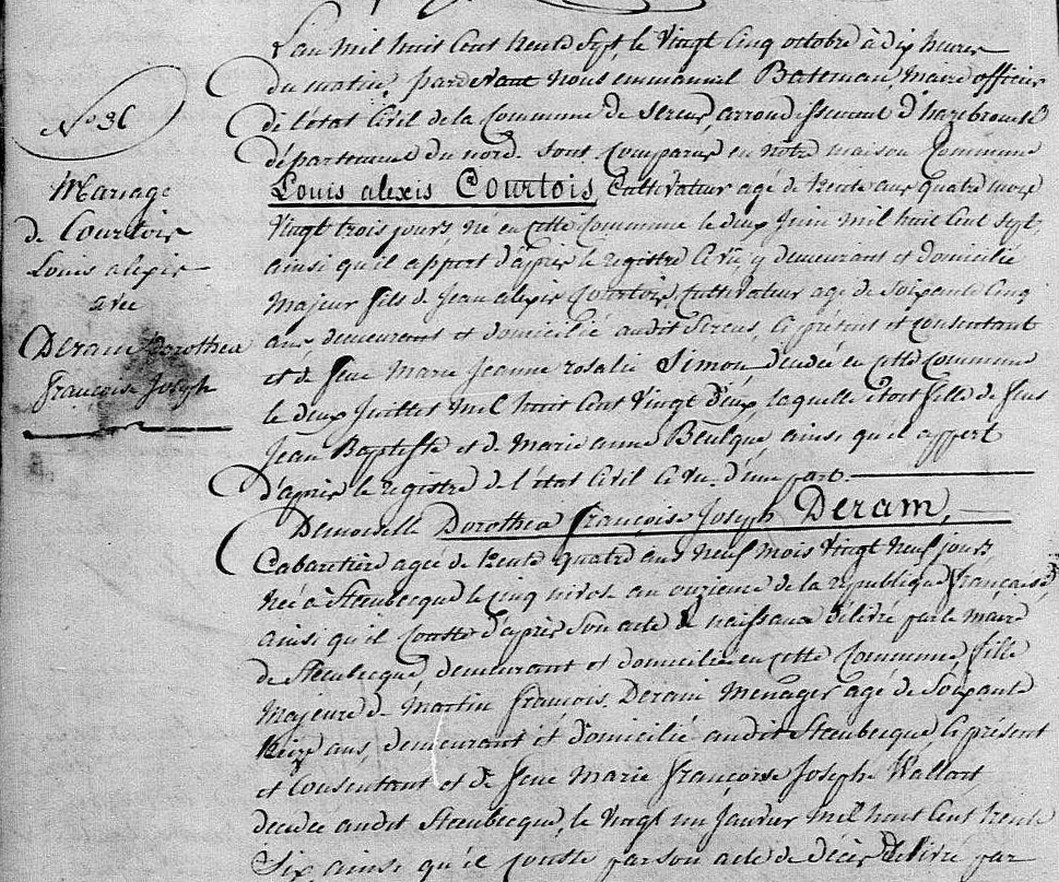 L'an mil huit Cent trente Sept, le Vingt Cinq octobre à dix heures
du matin, pardevant nous emmanuel Bateman, Maire officier
de l'état Civil de la Commune de Sercus, arrondissement d'hazebrouck
département du nord. Sont Comparus en notre maison Commune
Louis alexis Courtois Cultivateur agé de trente ans quatre mois
Vingt trois jours, né en cette Commune le deux Juin mil huit Cent Sept,
ainsi qu'il appert d'après le registre Ci vu, y demeurant et domicilié
Majeur fils de Jean alexis Courtois, Cultivateur agé de Soixante Cinq
ans demeurant et domicilié audit Sercus, Ci présent et Consentant
et de feue Marie Jeanne rosalie Simon décédée en cette Commune
le deux Juillet mil huit Cent Vingt deux, laquelle étoit fille de feus
Jean Baptiste et de Marie anne Beulque, ainsi qu'il appert
d'après le registre de l'état Civil Ci vu. d'une part.
Demoiselle Dorothea françoise Joseph Deram,
Cabaretière agée de trente quatre ans neuf mois Vingt neuf jours,
née à Steenbecque le Cinq nivose an onzième de la république française,
ainsi qu'il Conste d'après Son acte de naissance délivré par le Maire
de Steenbecque, demeurant et domiciliée en cette Commune, fille
Majeure de Martin françois Deram Menager agé de Soixante
treize ans, demeurant et domicilié audit Steenbecque, Ci présent
et Consentant et de feue Marie françoise Josephe Wallart
décédée audit Steenbecque, le Vingt un Janvier mil huit Cent trente
Six, ainsi qu'il Conste par son acte de décès délivré par
N° 36
Mariage
de Courtois
Louis alexis
avec
Deram Dorothea
françoise Joseph